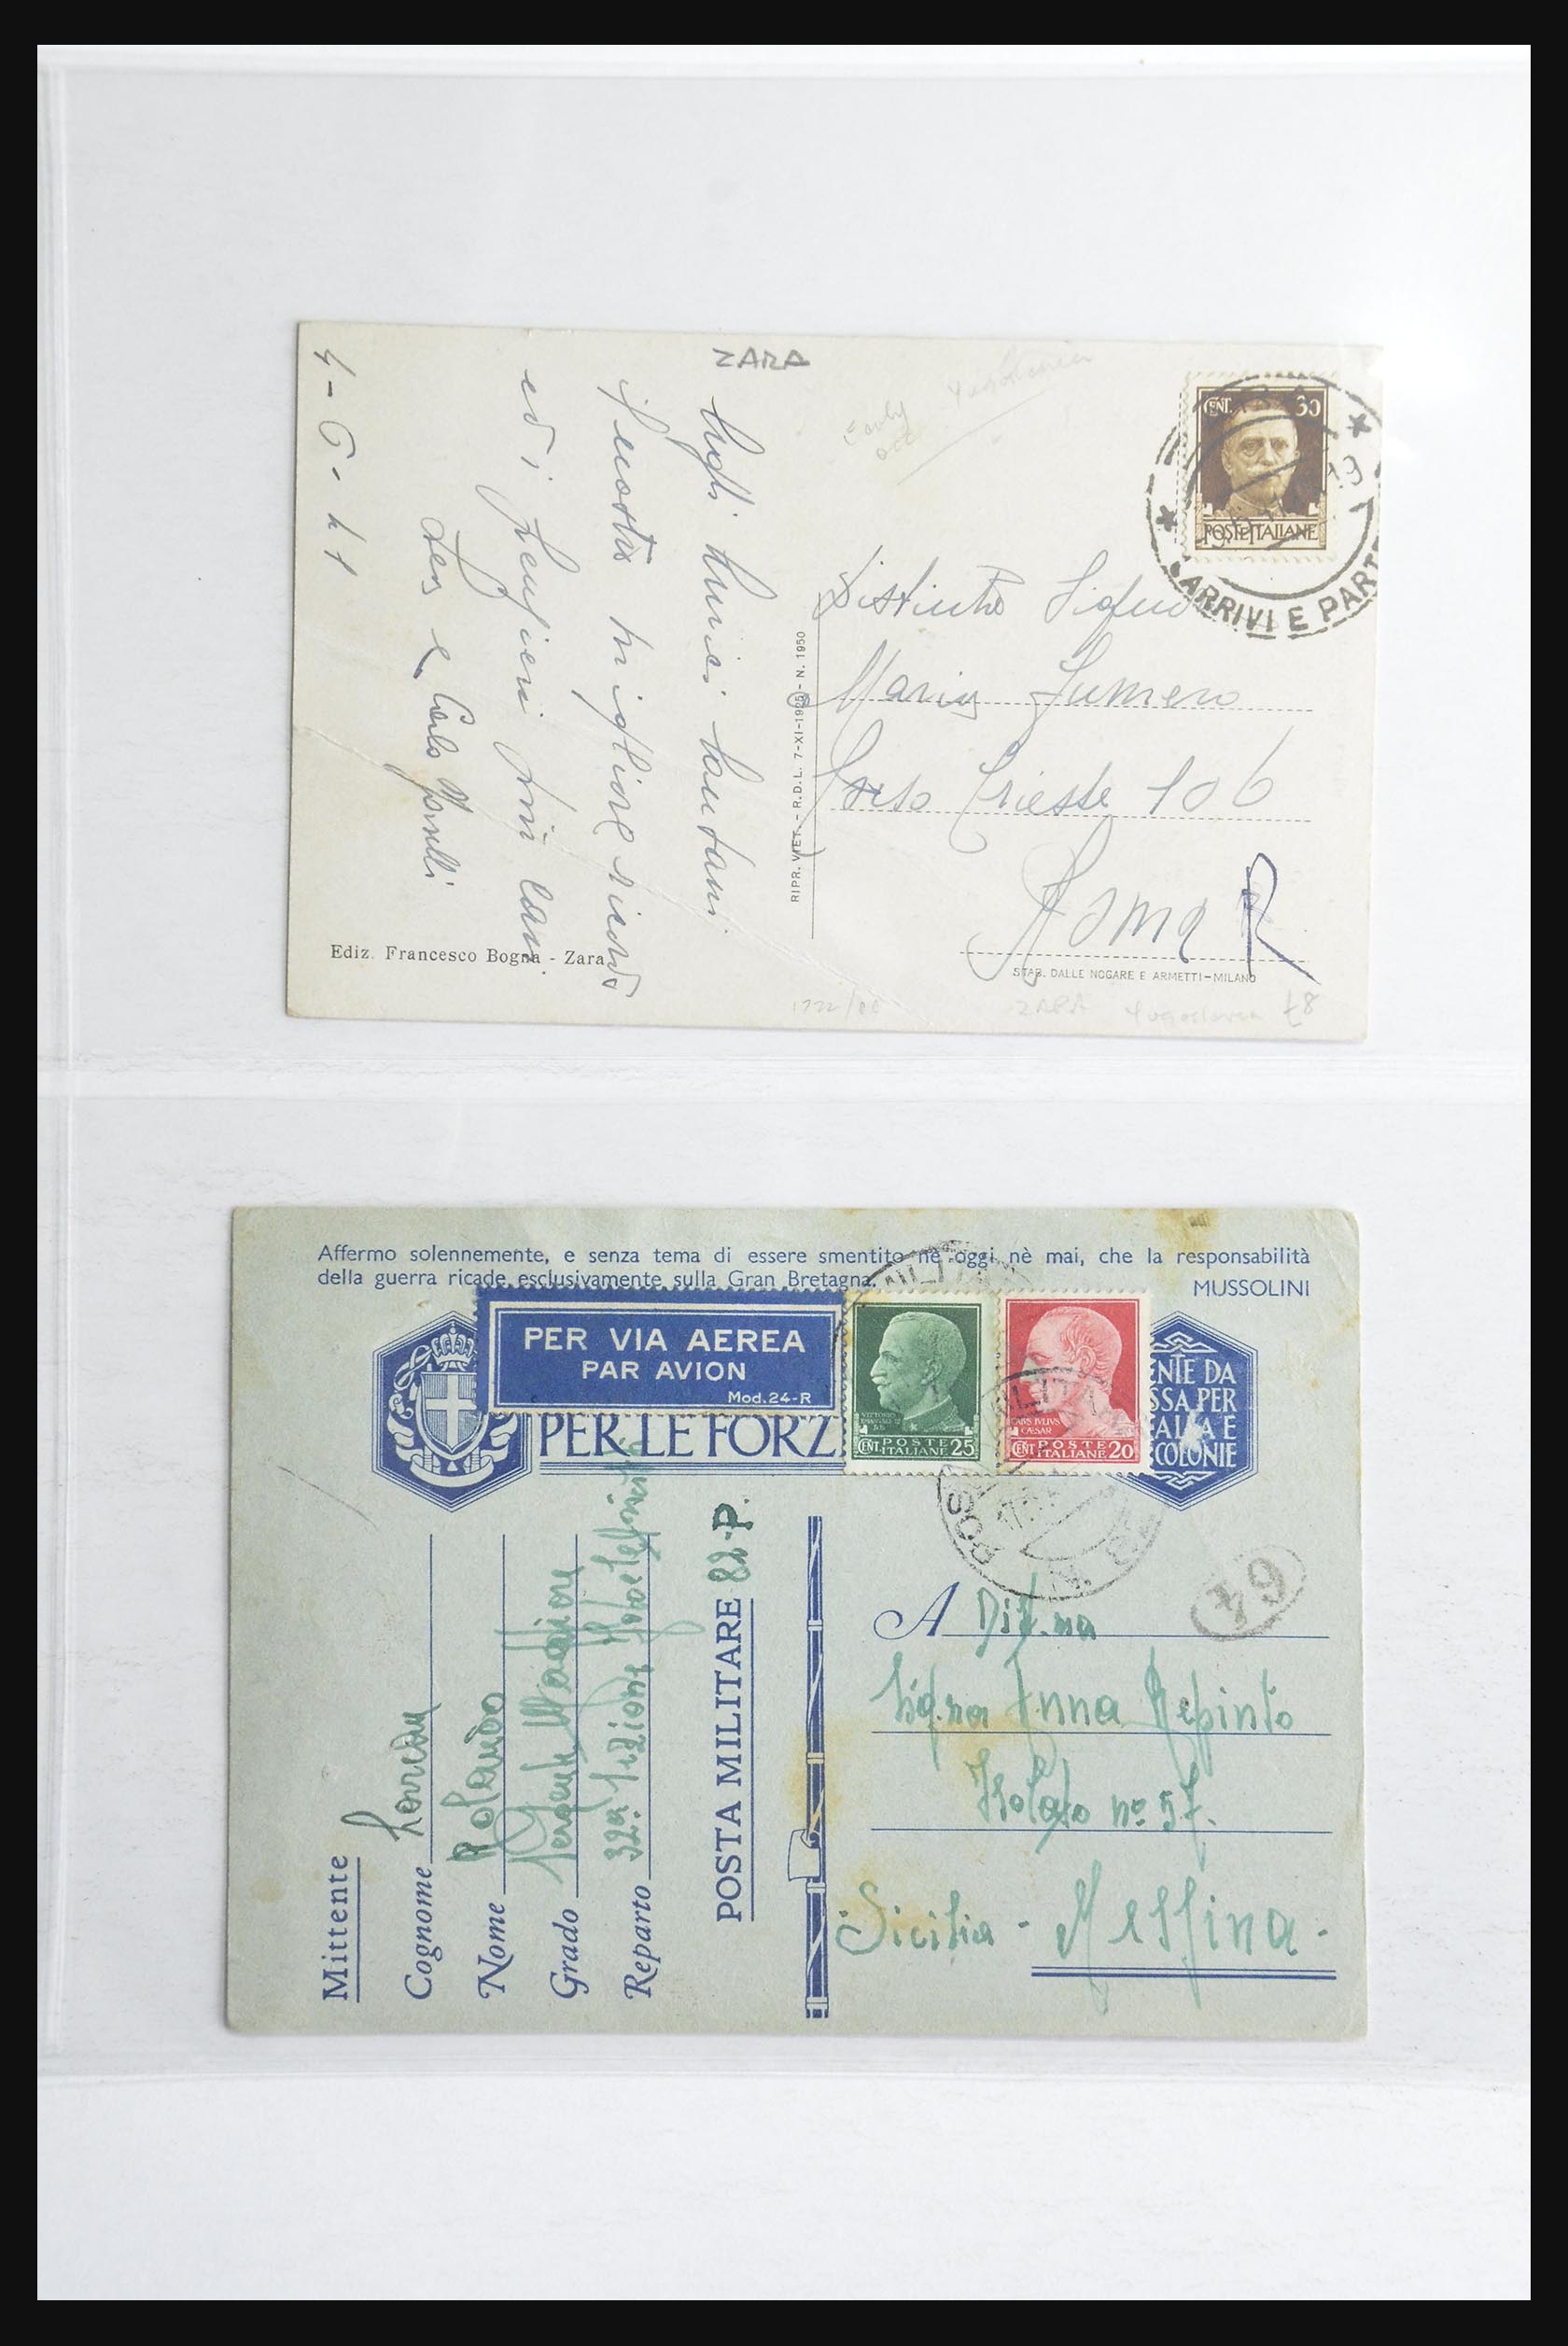 ZARA
Early Yugoslavia
occ
Agli amici lontani
il nostro migliore ricordo
ed i pensieri più cari
e Carlo
4-6-41
CENT. 30
POSTE ITALIANE
ARRIVI E PART
Mario
Corso Trieste 106
Roma
RIPR. VIET. - R.D.L. 7-XI-1925 - N. 1950
Ediz. Francesco Bogna - Zara
STAB. DALLE NOGARE E ARMETTI-MILANO
1722/
ZARA Yugoslavia £8
Affermo solennemente, e senza tema di essere smentito nè oggi nè mai, che la responsabilità
della guerra ricade esclusivamente sulla Gran Bretagna.
MUSSOLINI
PER VIA AEREA
PAR AVION
Mod. 24-R
PER LE FORZ
VITTORIO
CENT. POSTE ITALIANE 25
CAIVS IVLIVS
CAESAR
CENT. POSTE ITALIANE 20
ENTE DA
SSA PER
ALIA E
COLONIE
64
Mittente
Cognome Loredan
Nome Rolando
Grado Sergente Maggiore
Reparto 32a Sezione
POSTA MILITARE 82-P.
A Dist.ma
Sig.na Anna Repinto
Isolato no. 57.
Sicilia - Messina.